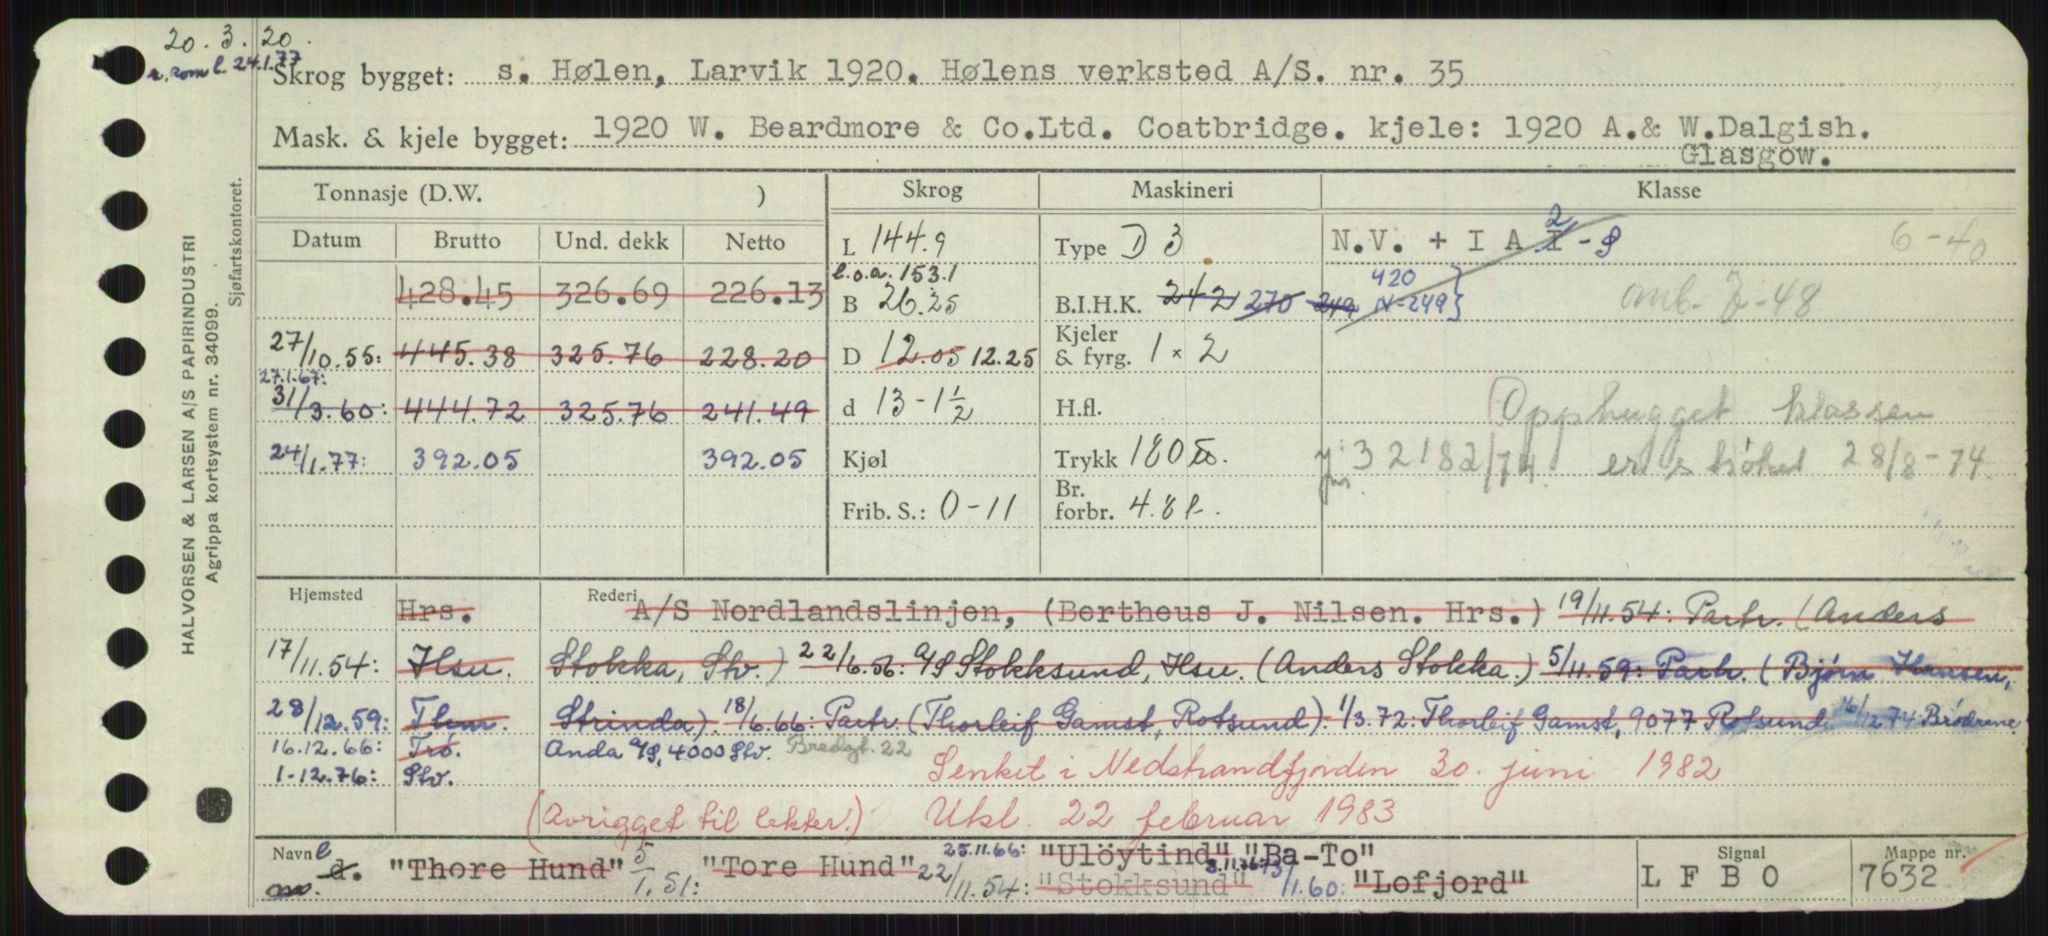 20.3.20.
r. som l. 24.1.77
Skrog bygget: s. Hølen, Larvik 1920. Hølens verksted A/S. nr. 35
Mask. & kjele bygget: 1920 W. Beardmore & Co.Ltd. Coatbridge. kjele: 1920 A.& W.Dalgish.
Glasgow.
HALVORSEN & LARSEN A/S PAPIRINDUSTRI
Agrippa kortsystem nr. 34099.
Sjøfartskontoret.
Tonnasje (D.W. ) Skrog Maskineri Klasse
Datum Brutto Und. dekk Netto L 144.9 Type D 3 N.V. + I A I 2 - S 6-40
l.o.a. 153.1
428.45 326.69 226.13 B 26.25 B.I.H.K. 242 270 249 420 N-249 omb. 7-48
27/10.55: 445.38 325.76 228.20 D 12.05 12.25 Kjeler & fyrg. 1 × 2
27.1.67:
31/3.60: 444.72 325.76 241.49 d 13-1½ H.fl. Opphugget klassen
24/1.77: 392.05 392.05 Kjøl Trykk 180 32182/74 28/8-74
Frib. S.: 0-11 Br. forbr. 4.8
Hjemsted Rederi
Hrs. A/S Nordlandslinjen, (Bertheus J. Nilsen. Hrs.) 19/11.54: Partr. (Anders
17/11.54: Hsu. Stokka, Stv.) 22/6.56: A/S Stokksund, Hsu. (Anders Stokka.) 5/11.59: Partr. (Bjørn Hansen,
28/12.59: Thm. Strinda). 18/6.66: Partr. (Thorleif Gamst, Rotsund). 1/3.72: Thorleif Gamst, 9077 Rotsund 16/12 74: Brødrene
16.12.66: Trö. Anda A/S, 4000 Stv. Bredgt. 22
1-12.76: Stv. Senket i Nedstrandfjorden 30. juni 1982
(Avrigget til lekter.) Utsl. 22 februar 1983
Navn l Signal Mappe nr.
d. "Thore Hund" 5/1.51: "Tore Hund" 22/11.54: "Stokksund" 13/1.60: "Lofjord" L F B O 7632
25.11.66: "Ulöytind" "Ba-To"